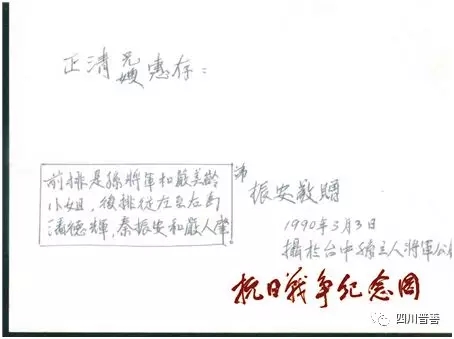 正清兄嫂惠存：
前排是孫將軍和嚴美齡
小姐，後排從左至右為
潘德輝，秦振安和嚴人
弟
振安敬贈
1990年3月3日
攝於台中孫立人將軍公
抗日戰争纪念网
四川晋善